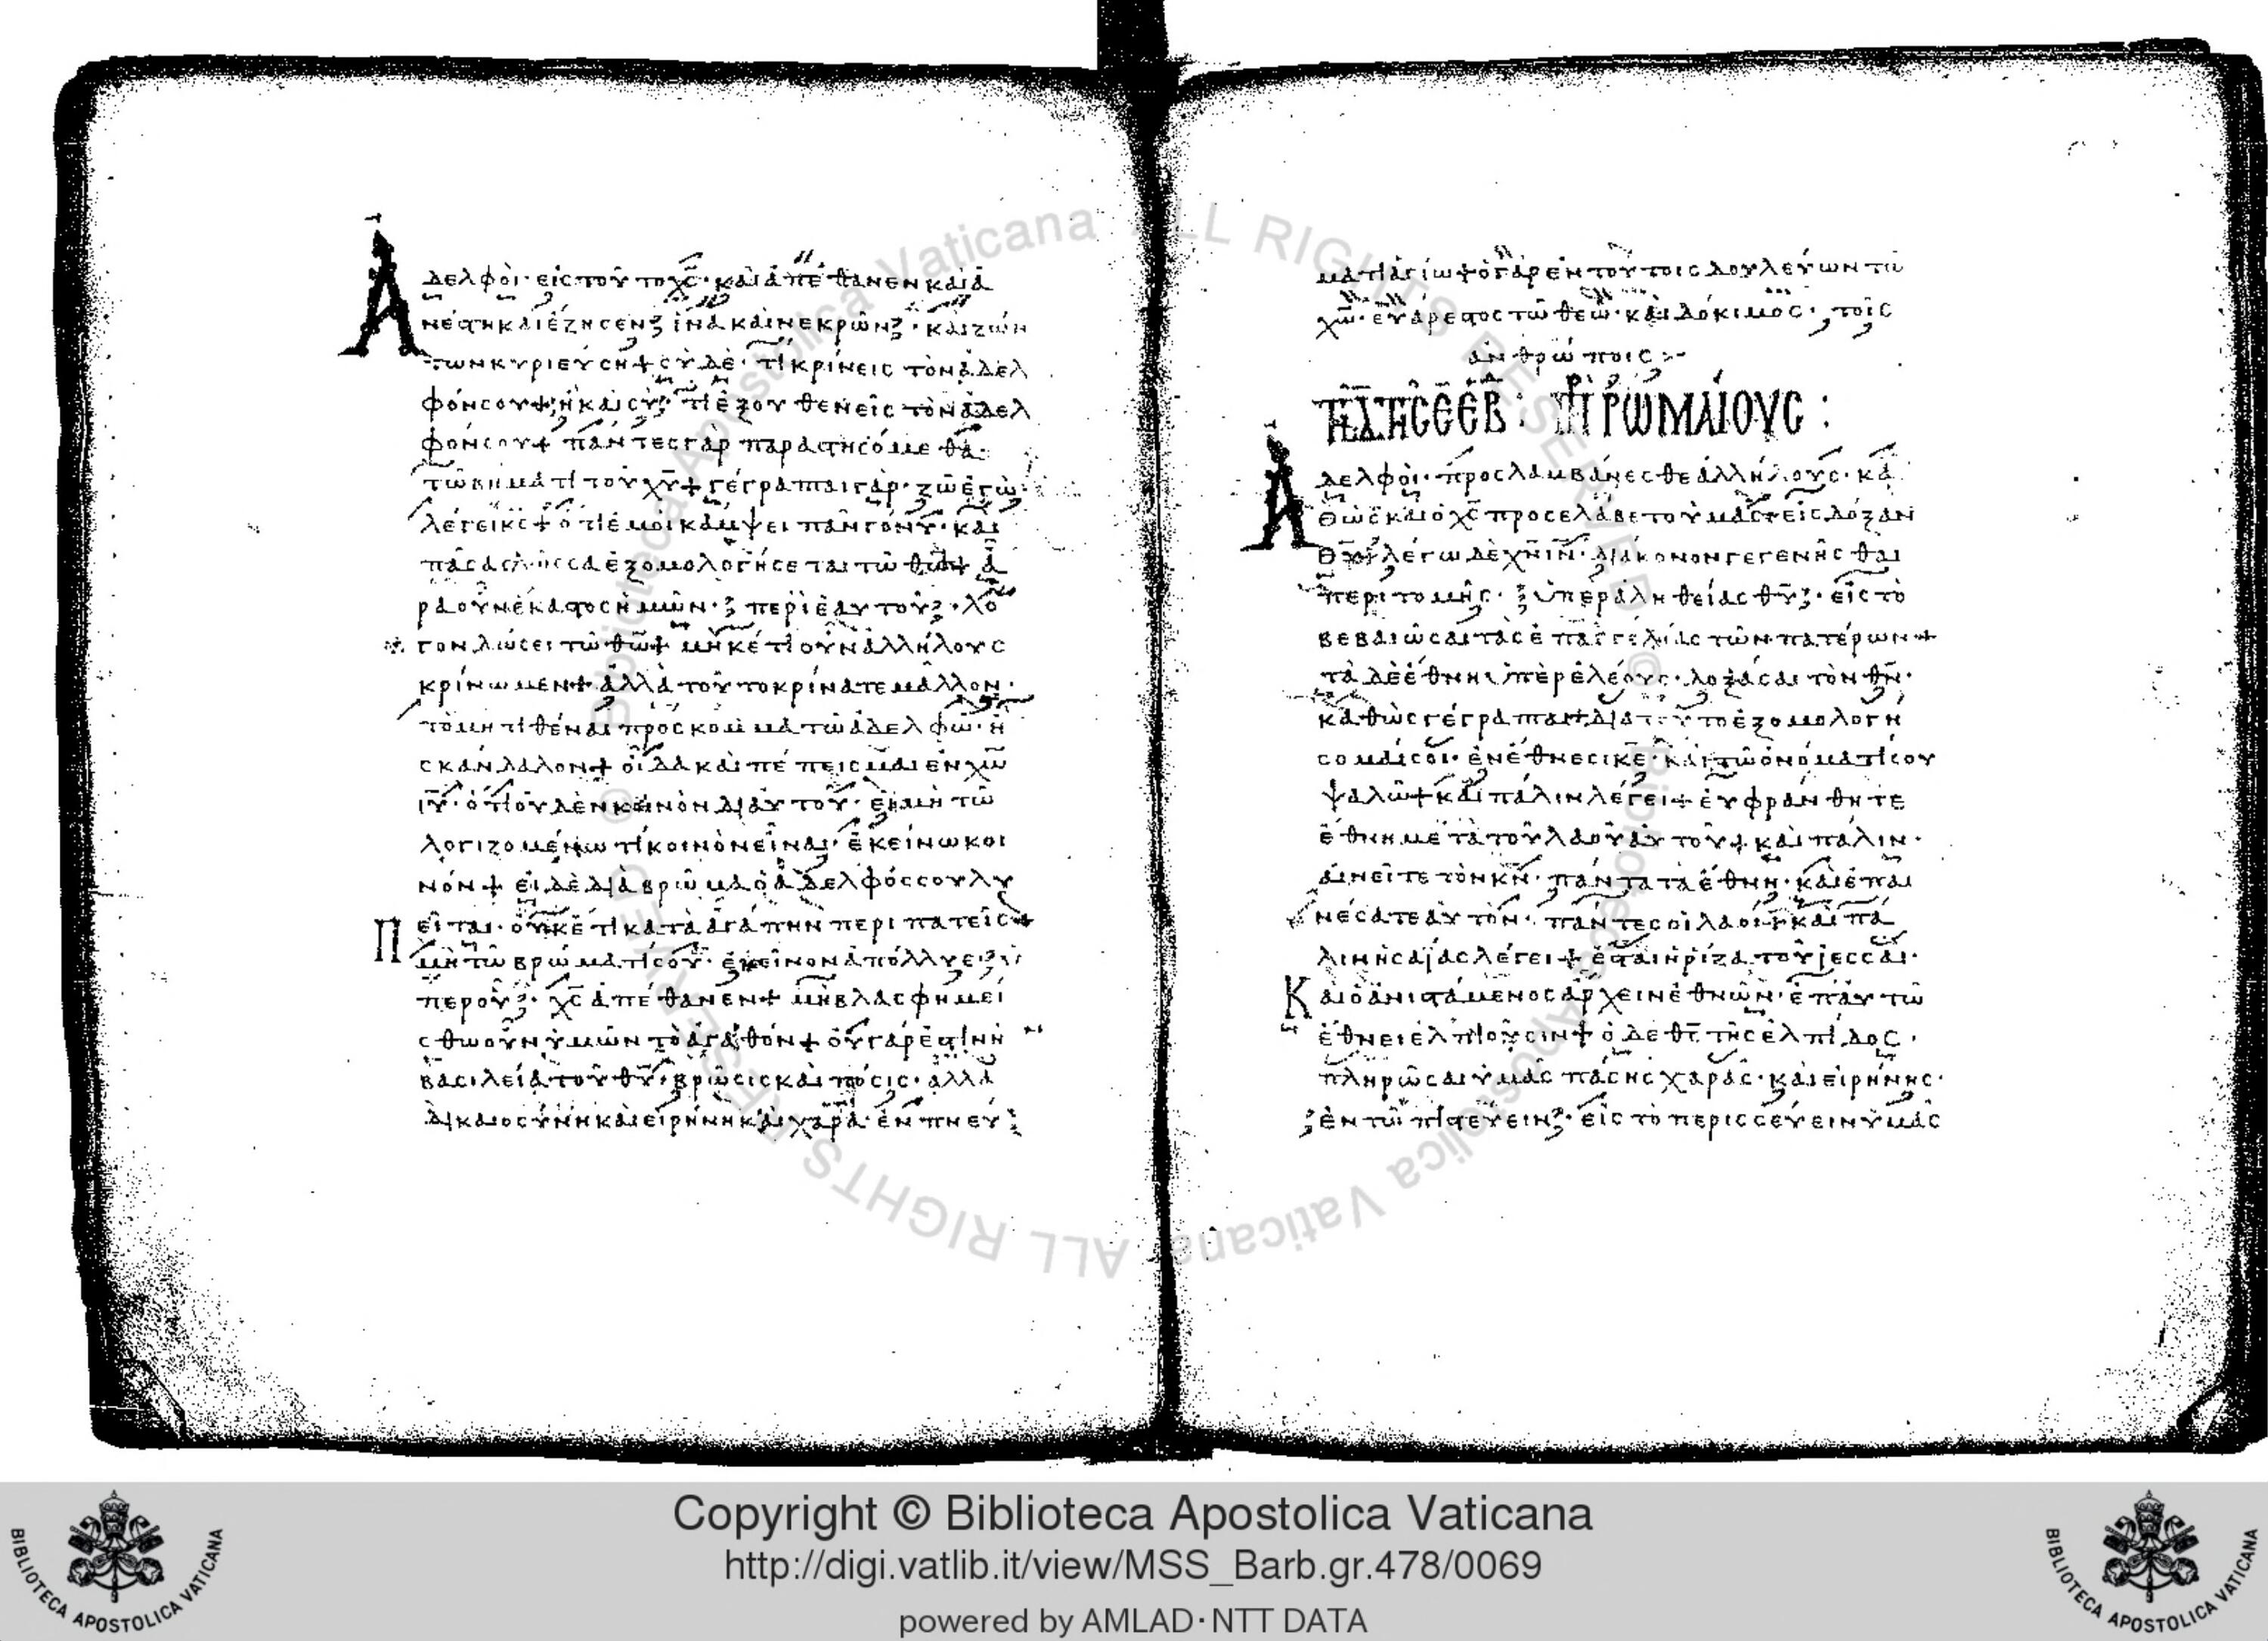 Ἀδελφοὶ· εἰς τοῦτο χς̅· καὶ ἀπέθανεν καὶ ἀ
νέστη καὶ ἔζησεν· ἵνα καὶ νεκρῶν· καὶ ζών
των κυριεύση + σὺ δὲ· τί κρίνεις τὸν ἀδελ
φόν σου + ἢ καὶ σὺ· τί ἐξουθενεῖς τὸν ἀδελ
φόν σου + πάντες γὰρ παραστησόμεθα·
τῶ βήματι τοῦ χυ̅ + γέγραπται γὰρ· ζῶ ἐγὼ·
λέγει κς̅ + ὅτι ἐμοὶ κάμψει πᾶν γόνυ· καὶ
πᾶσα γλῶσσα ἐξομολογήσεται τῶ θω̅ + ἄ
ρα οὖν ἕκαστος ἡμῶν· περὶ ἑαυτοῦ· λό
γον δώσει τῶ θω̅ + μηκέτι οὖν ἀλλήλους
κρίνωμεν + ἀλλὰ τοῦτο κρίνατε μᾶλλον·
τὸ μὴ τιθέναι πρόσκομμα τῶ ἀδελφῶ· ἢ
σκάνδαλον + οἶδα καὶ πέπεισμαι ἐν χω̅
ιυ̅· ὅτι οὐδὲν κοινὸν δι' αὐτοῦ· εἰ μὴ τῶ
λογιζομένω τί κοινὸν εἶναι· ἐκείνω κοι
νόν + εἰ δὲ διὰ βρῶμα ὁ ἀδελφός σου λυ
πεῖται· οὐκέτι κατὰ ἀγάπην περιπατεῖς +
μὴ τῶ βρώματί σου· ἐκεῖνον ἀπόλλυε· ὑ
περ οὗ· χς̅ ἀπέθανεν + μὴ βλασφημεί
σθω οὖν ὑμῶν τὸ ἀγαθόν + οὐ γάρ ἐστιν ἡ
βασιλεία τοῦ θυ̅· βρῶσις καὶ πόσις· ἀλλὰ
δικαιοσύνη καὶ εἰρήνη καὶ χαρὰ· ἐν πνεύ
ματι ἁγίω + ὁ γὰρ ἐν τούτοις δουλεύων τῶ
χω̅· εὐάρεστος τῶ θεῶ· καὶ δόκιμος· τοῖς
ἀνθρώποις :-
ΠΡ ΡΩΜΑΙΟΥΣ :
Ἀδελφοὶ· προσλαμβάνεσθε ἀλλήλους· κα
θὼς καὶ ὁ χς̅ προσελάβετο ὑμᾶς εἰς δόξαν
θυ̅ + λέγω δὲ χν̅ ιν̅· διάκονον γεγενῆσθαι
περιτομῆς· ὑπὲρ ἀληθείας θυ̅· εἰς τὸ
βεβαιῶσαι τὰς ἐπαγγελίας τῶν πατέρων +
τὰ δὲ ἔθνη ὑπὲρ ἐλέους· δοξάσαι τὸν θν̅·
καθὼς γέγραπται + διὰ τοῦτο ἐξομολογή
σομαί σοι· ἐν ἔθνεσι κε̅· καὶ τῶ ὀνόματί σου
ψαλῶ + καὶ πάλιν λέγει + εὐφράνθητε
ἔθνη μετὰ τοῦ λαοῦ αὐτοῦ + καὶ πάλιν·
αἰνεῖτε τὸν κν̅· πάντα τὰ ἔθνη· καὶ ἐπαι
νέσατε αὐτὸν· πάντες οἱ λαοί + καὶ πά
λιν ἡσαΐας λέγει + ἔσται ἡ ρίζα τοῦ ἰεσσαί·
Καὶ ὁ ἀνιστάμενος ἄρχειν ἐθνῶν· ἐπ' αὐτῶ
ἔθνει ἐλπιοῦσιν + ὁ δε θς̅ τῆς ἐλπίδος·
πληρῶσαι ὑμᾶς πάσης χαρᾶς· καὶ εἰρήνης·
ἐν τῶ πιστεύειν· εἰς τὸ περισσεύειν ὑμᾶς
Copyright © Biblioteca Apostolica Vaticana
http://digi.vatlib.it/view/MSS_Barb.gr.478/0069
powered by AMLAD·NTT DATA
BIBLIOTECA APOSTOLICA VATICANA
BIBLIOTECA APOSTOLICA VATICANA